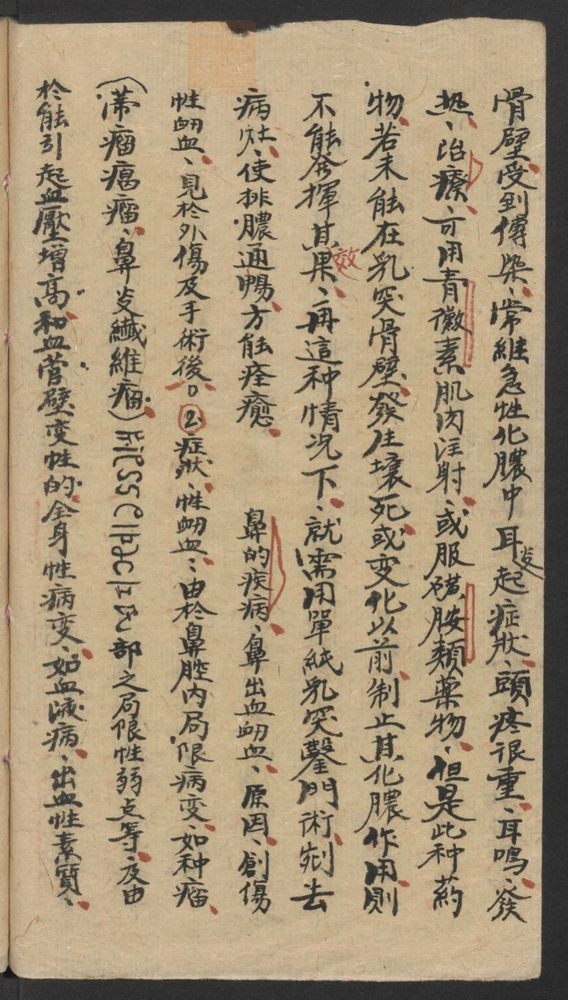 骨壁受到傳染、常継急性化膿中耳发起症狀、頭疼很重、耳鳴、發
熱、治療、可用青黴素肌肉注射、或服磺胺類藥物、但是此种葯
物、若未能在乳突骨壁、發生壞死或变化以前制止其化膿作用則
不能發揮其效果、再這种情况下、就需用單純乳突鑿開術、刮去
病灶、使排膿通暢、方能痊癒、 鼻的疾病、鼻出血衂血、原因、創傷
性衂血、見於外傷及手術後。②症狀性衂血、由於鼻腔内局限病变、如种瘤、
(蒂瘤瘜瘤、鼻炎纖維瘤)Kiesselbach氏部之局限性弱点等、及由
於能引起血壓增高、和血管壁变性的全身性病变、如血液病、出血性素質、